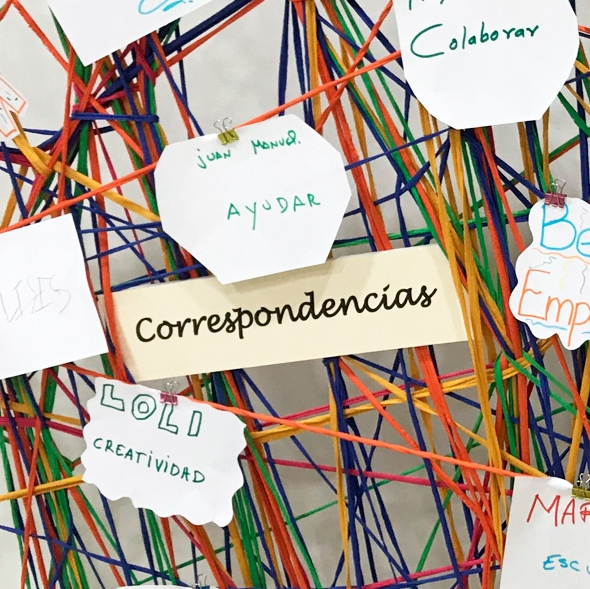 Colaborar
Juan Manuel.
AYUDAR
Be
Emp
Correspondencias
LOLI
CREATIVIDAD
MAR
ESCU